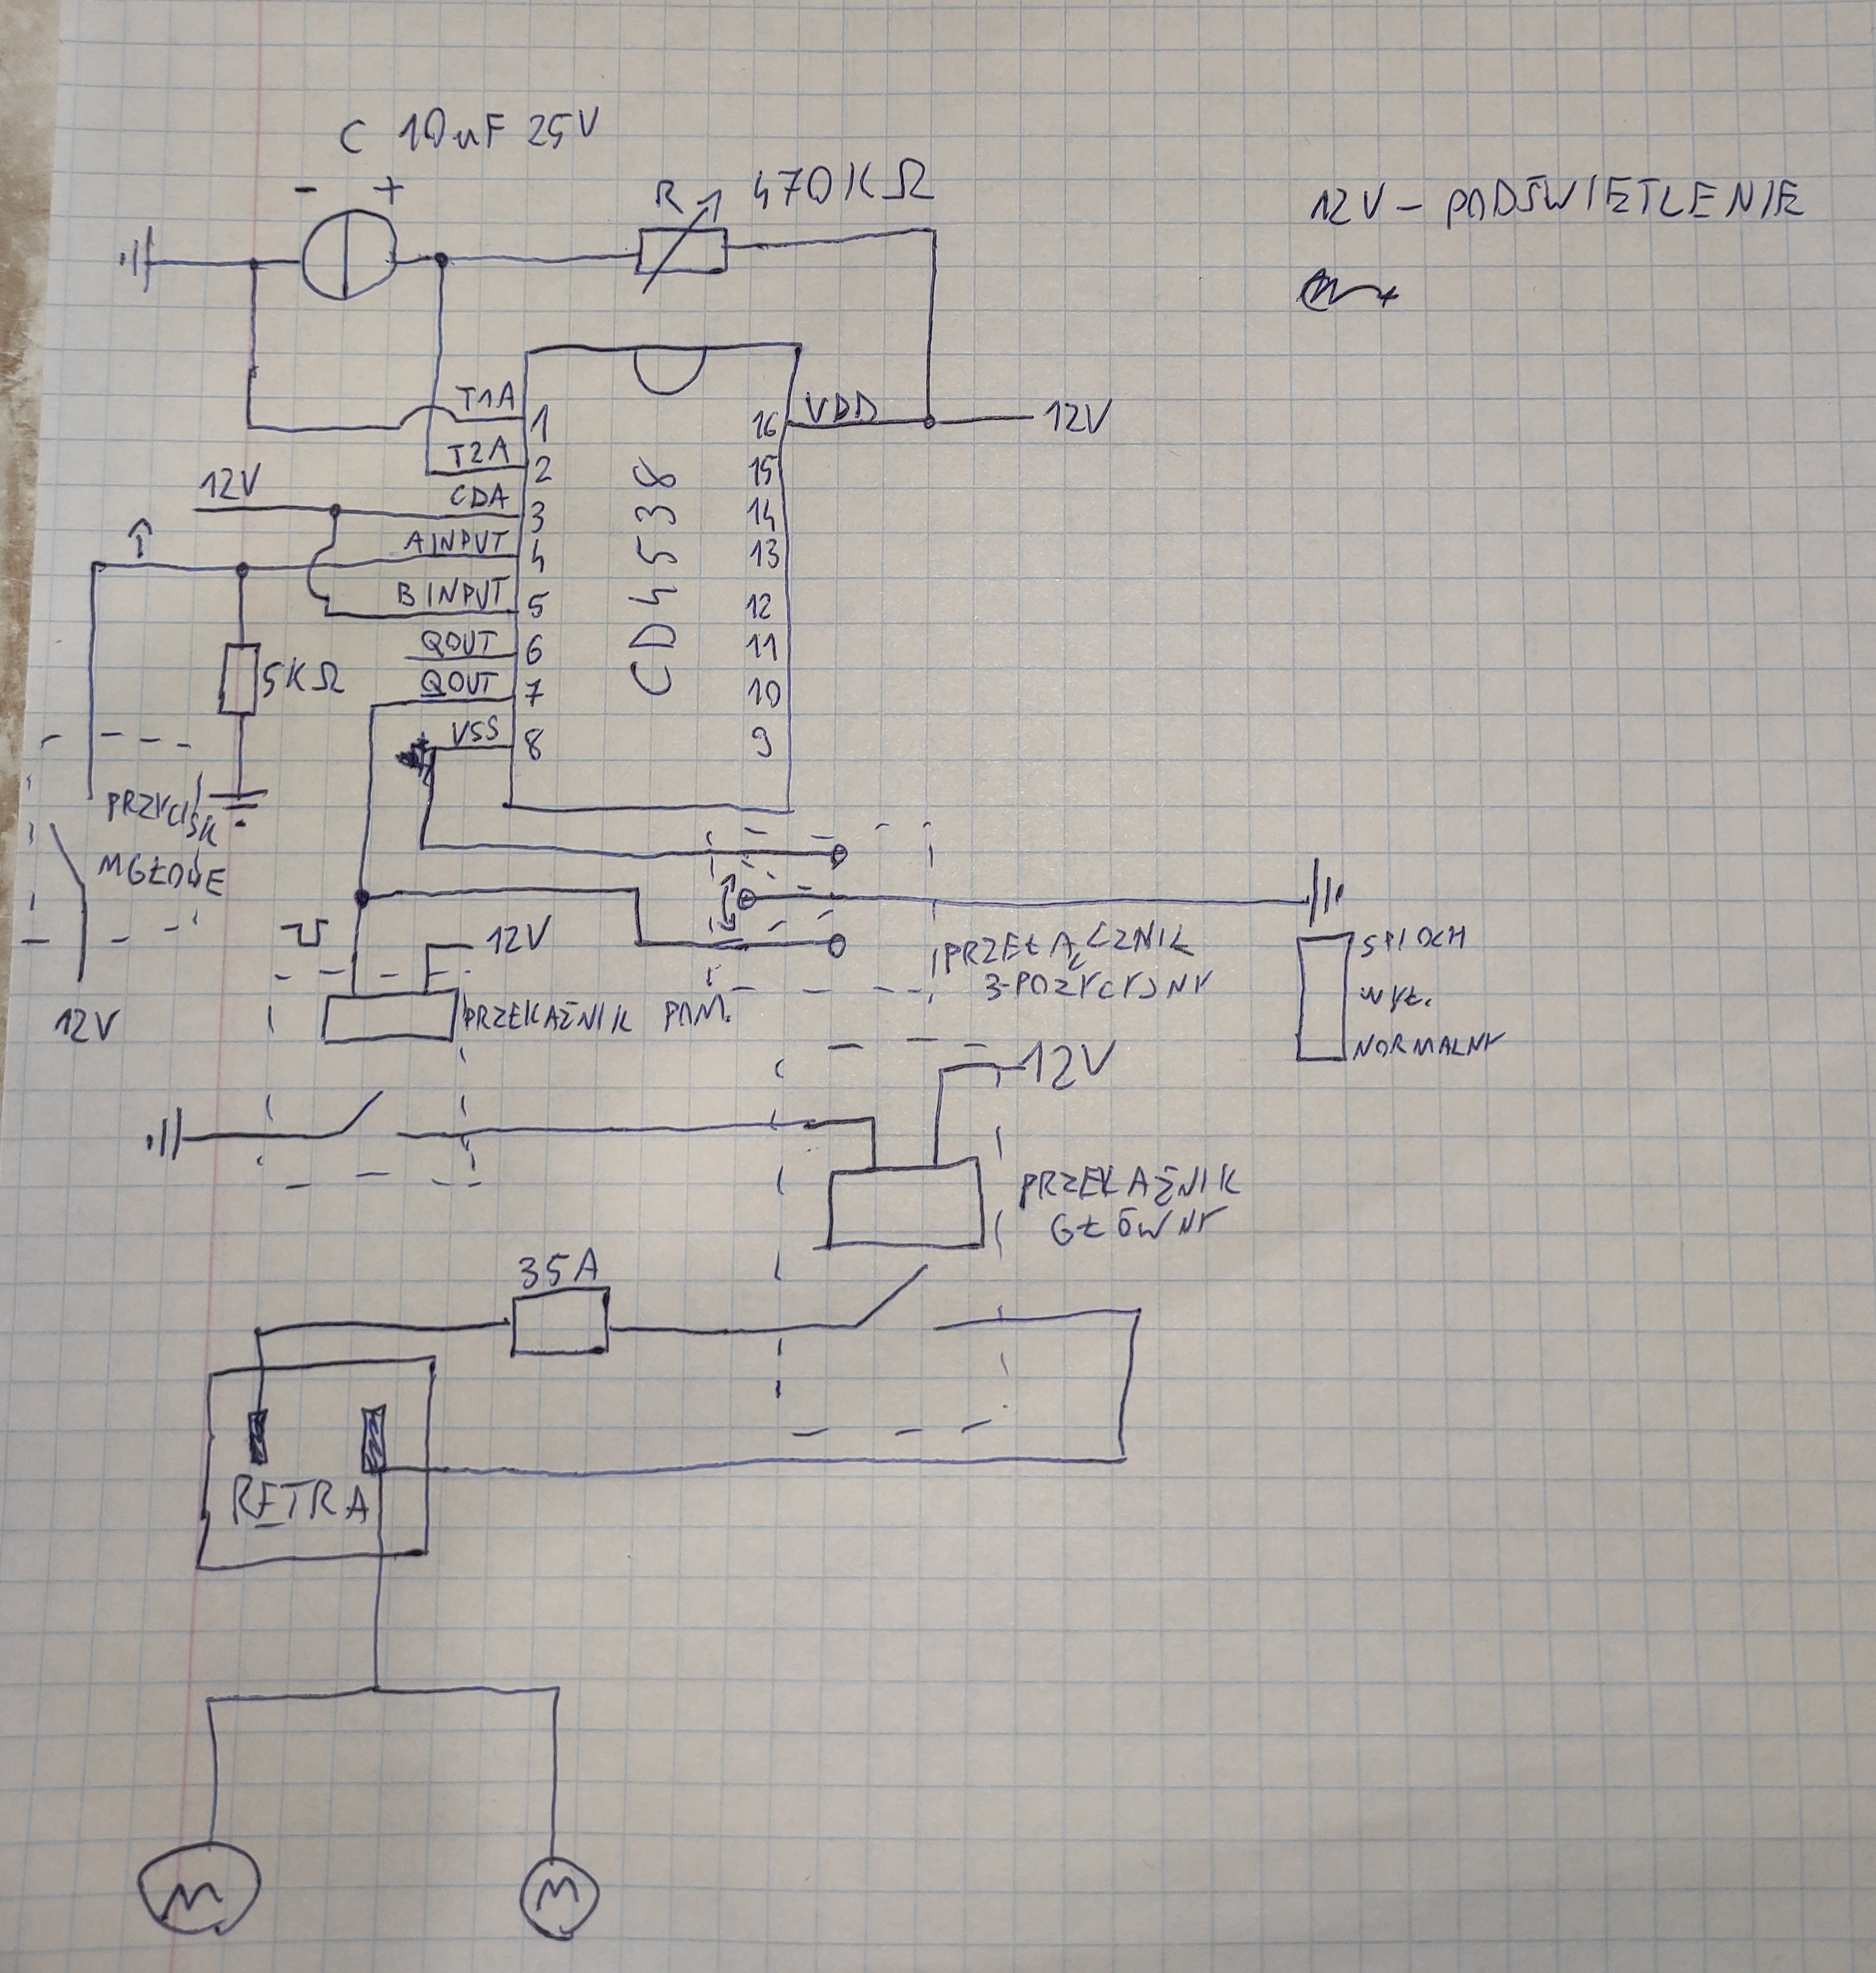 C 10uF 25V
- +
R 470KΩ
12V - PODŚWIETLENIE
T1A 1
T2A 2
12V CDA 3
A INPUT 4
B INPUT 5
QOUT 6
QOUT 7
VSS 8
CD4538
16 VDD 12V
15
14
13
12
11
10
9
5KΩ
PRZYCISK
MGŁOWE
12V
12V
PRZEKAŹNIK POM.
PRZEŁĄCZNIK
3-POZYCYJNY
ŚPIOCH
WYŁ.
NORMALNY
12V
PRZEKAŹNIK
GŁÓWNY
35A
RETRA
M M